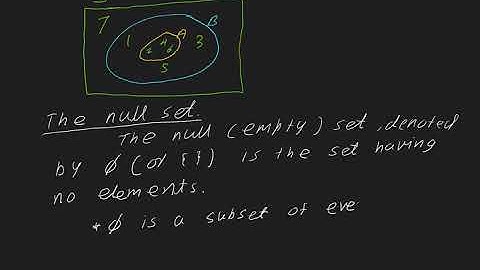 7
B
1
4
A
3
2
6
5
The null set.
The null (empty) set, denoted
by ϕ (or { }) is the set having
no elements.
* ϕ is a subset of eve